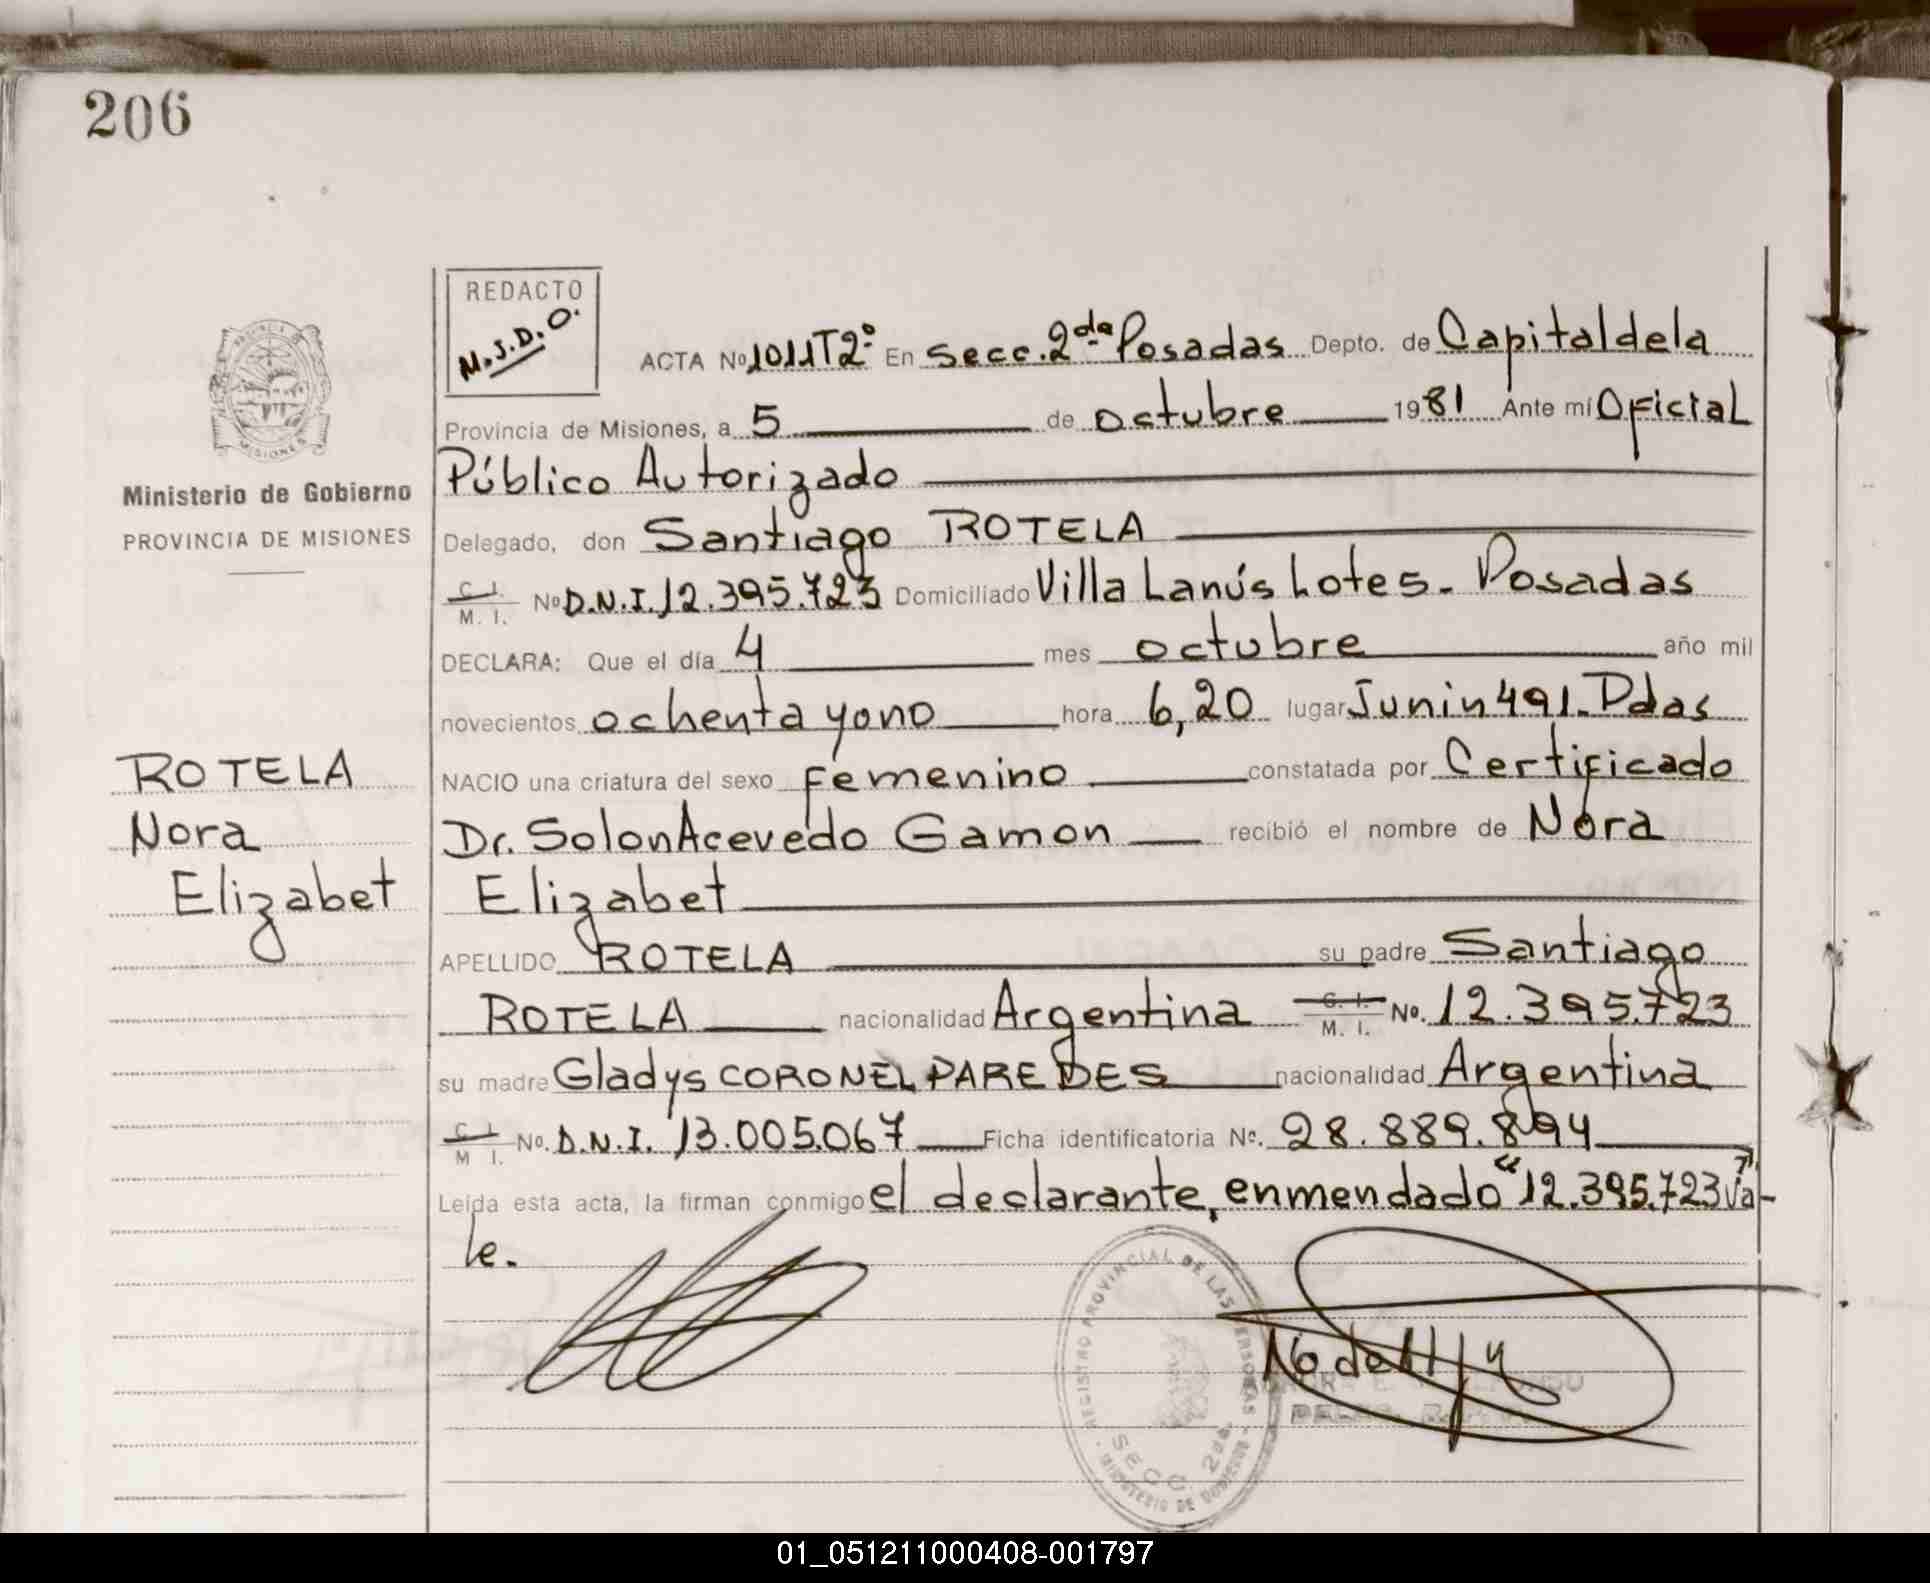 206
REDACTO
M.J.D.O.
ACTA No 1011T2º En Secc. 2da Posadas Depto. de Capital de la
Provincia de Misiones, a 5 de octubre 1981 Ante mí Oficial
Público Autorizado
Delegado, don Santiago ROTELA
C. I.
M. I. No D.N.I. 12.395.723 Domiciliado Villa Lanús Lotes - Posadas
DECLARA: Que el día 4 mes octubre año mil
novecientos ochenta y uno hora 6,20 lugar Junin 491. Pdas
NACIO una criatura del sexo Femenino constatada por Certificado
Dr. Solon Acevedo Gamon recibió el nombre de Nora
Elizabet
APELLIDO ROTELA su padre Santiago
ROTELA nacionalidad Argentina C. I.
M. I. No. 12.395.723
su madre Gladys CORONEL PAREDES nacionalidad Argentina
C. I.
M I. No. D.N.I. 13.005.067 Ficha identificatoria Nº. 28.889.894
Leída esta acta, la firman conmigo el declarante, enmendado "12.395.723" Va-
le.
PROVINCIA
MISIONES
Ministerio de Gobierno
PROVINCIA DE MISIONES
ROTELA
Nora
Elizabet
REGISTRO PROVINCIAL DE LAS PERSONAS
SECC. 2da.
MINISTERIO DE GOBIERNO
01_051211000408-001797